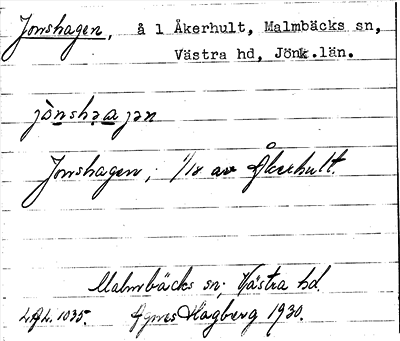 Jonshagen, å 1 Åkerhult, Malmbäcks sn,
Västra hd, Jönk.län.
jònshaajən
Jonshagen; 1/18 av Åkerhult.
Malmbäcks sn; Västra hd.
L.A.L. 1035. Agnes Hagberg 1930.